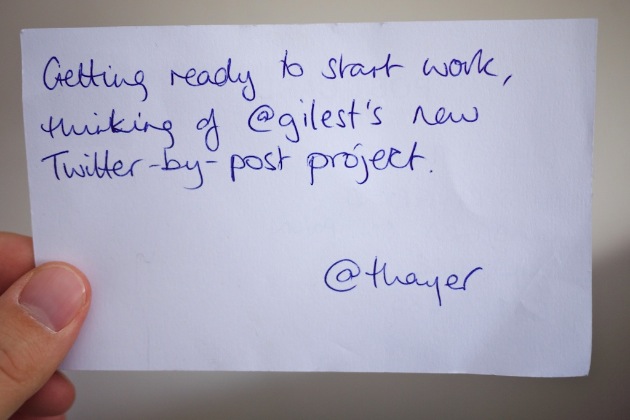 Getting ready to start work,
thinking of @gilest's new
Twitter-by-post project.
@thayer